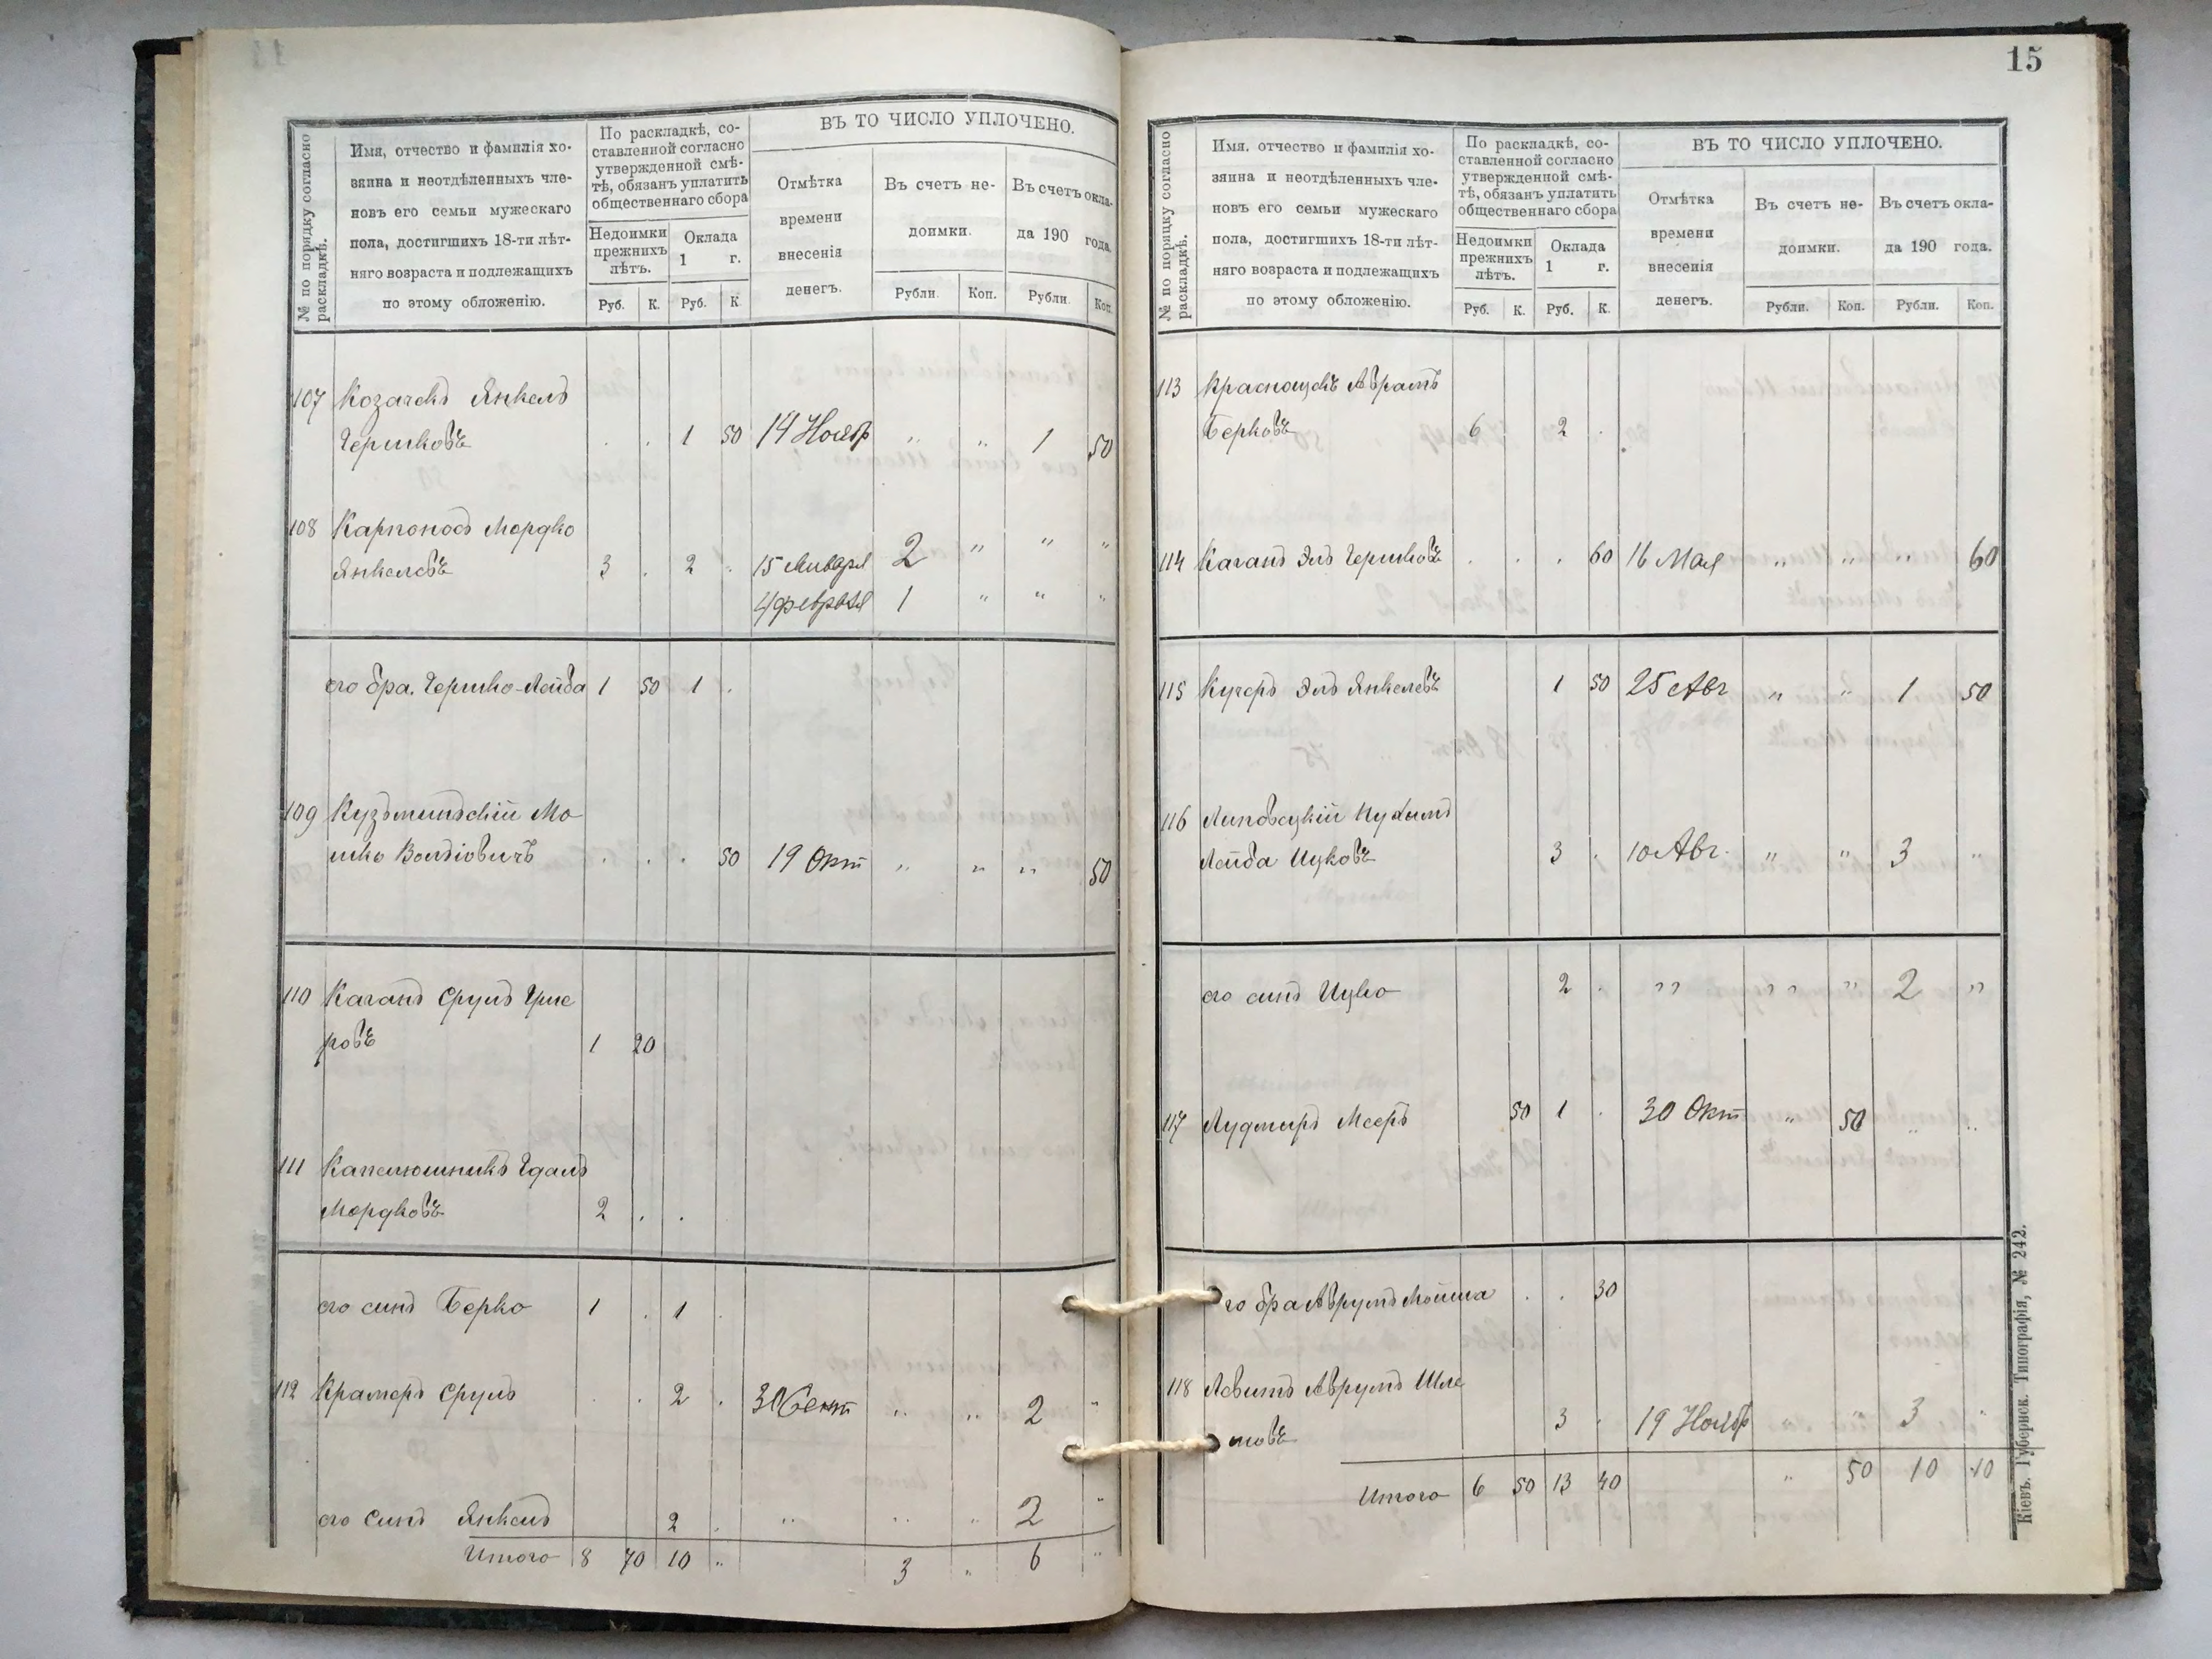 15
№ по порядку согласно раскладкѣ.
Имя, отчество и фамилія хо-
зяина и неотдѣленныхъ чле-
новъ его семьи мужескаго
пола, достигшихъ 18-ти лѣт-
няго возраста и подлежащихъ
по этому обложенію.
По раскладкѣ, со-
ставленной согласно
утвержденной смѣ-
тѣ, обязанъ уплатить
общественнаго сбора
Недоимки
прежнихъ
лѣтъ.
Оклада
1 г.
Руб. К. Руб. К
ВЪ ТО ЧИСЛО УПЛОЧЕНО.
Отмѣтка
времени
внесенія
денегъ.
Въ счетъ не-
доимки.
Рубли. Коп.
Въ счетъ окла-
да 190 года.
Рубли. Коп.
107 Козачекъ Янкель
Гершковъ . . 1 50 14 Ноябр " " 1 50
108 Карпоносъ Мордко
Янкелевъ 3 . 2 . 15 Января 2 " " "
4 февраля 1 " " "
его бра. Гершко-Лейба 1 50 1 .
109 Кузьминскій Мо
шко Вольфовичъ . . . 50 19 Окт " " " 50
110 Каганъ Сруль
ровъ 1 20
111 Капелюшникъ Гдаль
Мордковъ 2 . .
его сынъ Берко 1 . 1 .
112 Крамеръ Сруль . . 2 . 30 Сент " " 2 "
его сынъ Янкель 2 . " " " 2 "
Итого 8 70 10 " 3 " 6 "
№ по порядку согласно раскладкѣ.
Имя, отчество и фамилія хо-
зяина и неотдѣленныхъ чле-
новъ его семьи мужескаго
пола, достигшихъ 18-ти лѣт-
няго возраста и подлежащихъ
по этому обложенію.
По раскладкѣ, со-
ставленной согласно
утвержденной смѣ-
тѣ, обязанъ уплатить
общественнаго сбора
Недоимки
прежнихъ
лѣтъ.
Оклада
1 г.
Руб. К. Руб. К.
ВЪ ТО ЧИСЛО УПЛОЧЕНО.
Отмѣтка
времени
внесенія
денегъ.
Въ счетъ не-
доимки.
Рубли. Коп.
Въ счетъ окла-
да 190 года.
Рубли. Коп.
113 Краснощекъ Аврамъ
Берковъ 6 2 .
114 Каганъ Эль Гершковъ . . . 60 16 Мая " " " 60
115 Кучеръ Эль Янкелевъ 1 50 25 Авг " " 1 50
116 Липовецкій Нухимъ
Лейба Ицковъ 3 . 10 Авг. " " 3 "
его сынъ Ицко 2 . " " " 2 "
117 Лудмиръ Мееръ 50 1 . 30 Окт " 50 " "
го бра Аврумъ Мойша . . 30
118 Левитъ Аврумъ Шле
мовъ 3 . 19 Ноябр " " 3 "
Итого 6 50 13 40 " 50 10 10
Кіевъ. Губернск. Типографія, № 242.